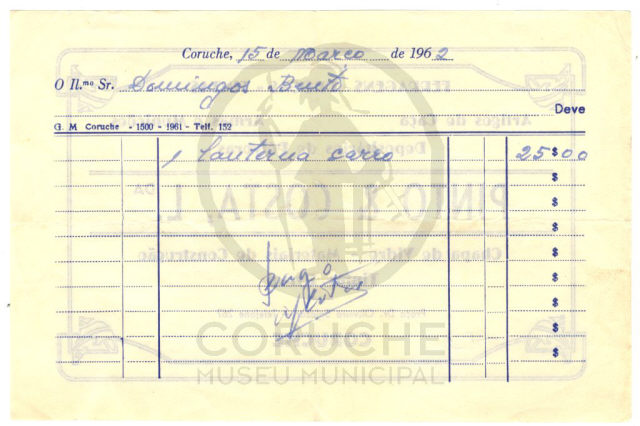 Coruche, 15 de Março de 1962
O Il.mo Sr. Domingos Bento
Deve
G. M Coruche - 1500 - 1961 - Telf. 152
1 Lanterna carro 25$00
$
$
$
$
$
$
$
$
Pago
FERRAGENS
Artigos de Caça
PINTO & COSTA, L.DA
Chapa de Vidro - Materiais de Construção
CORUCHE
MUSEU MUNICIPAL